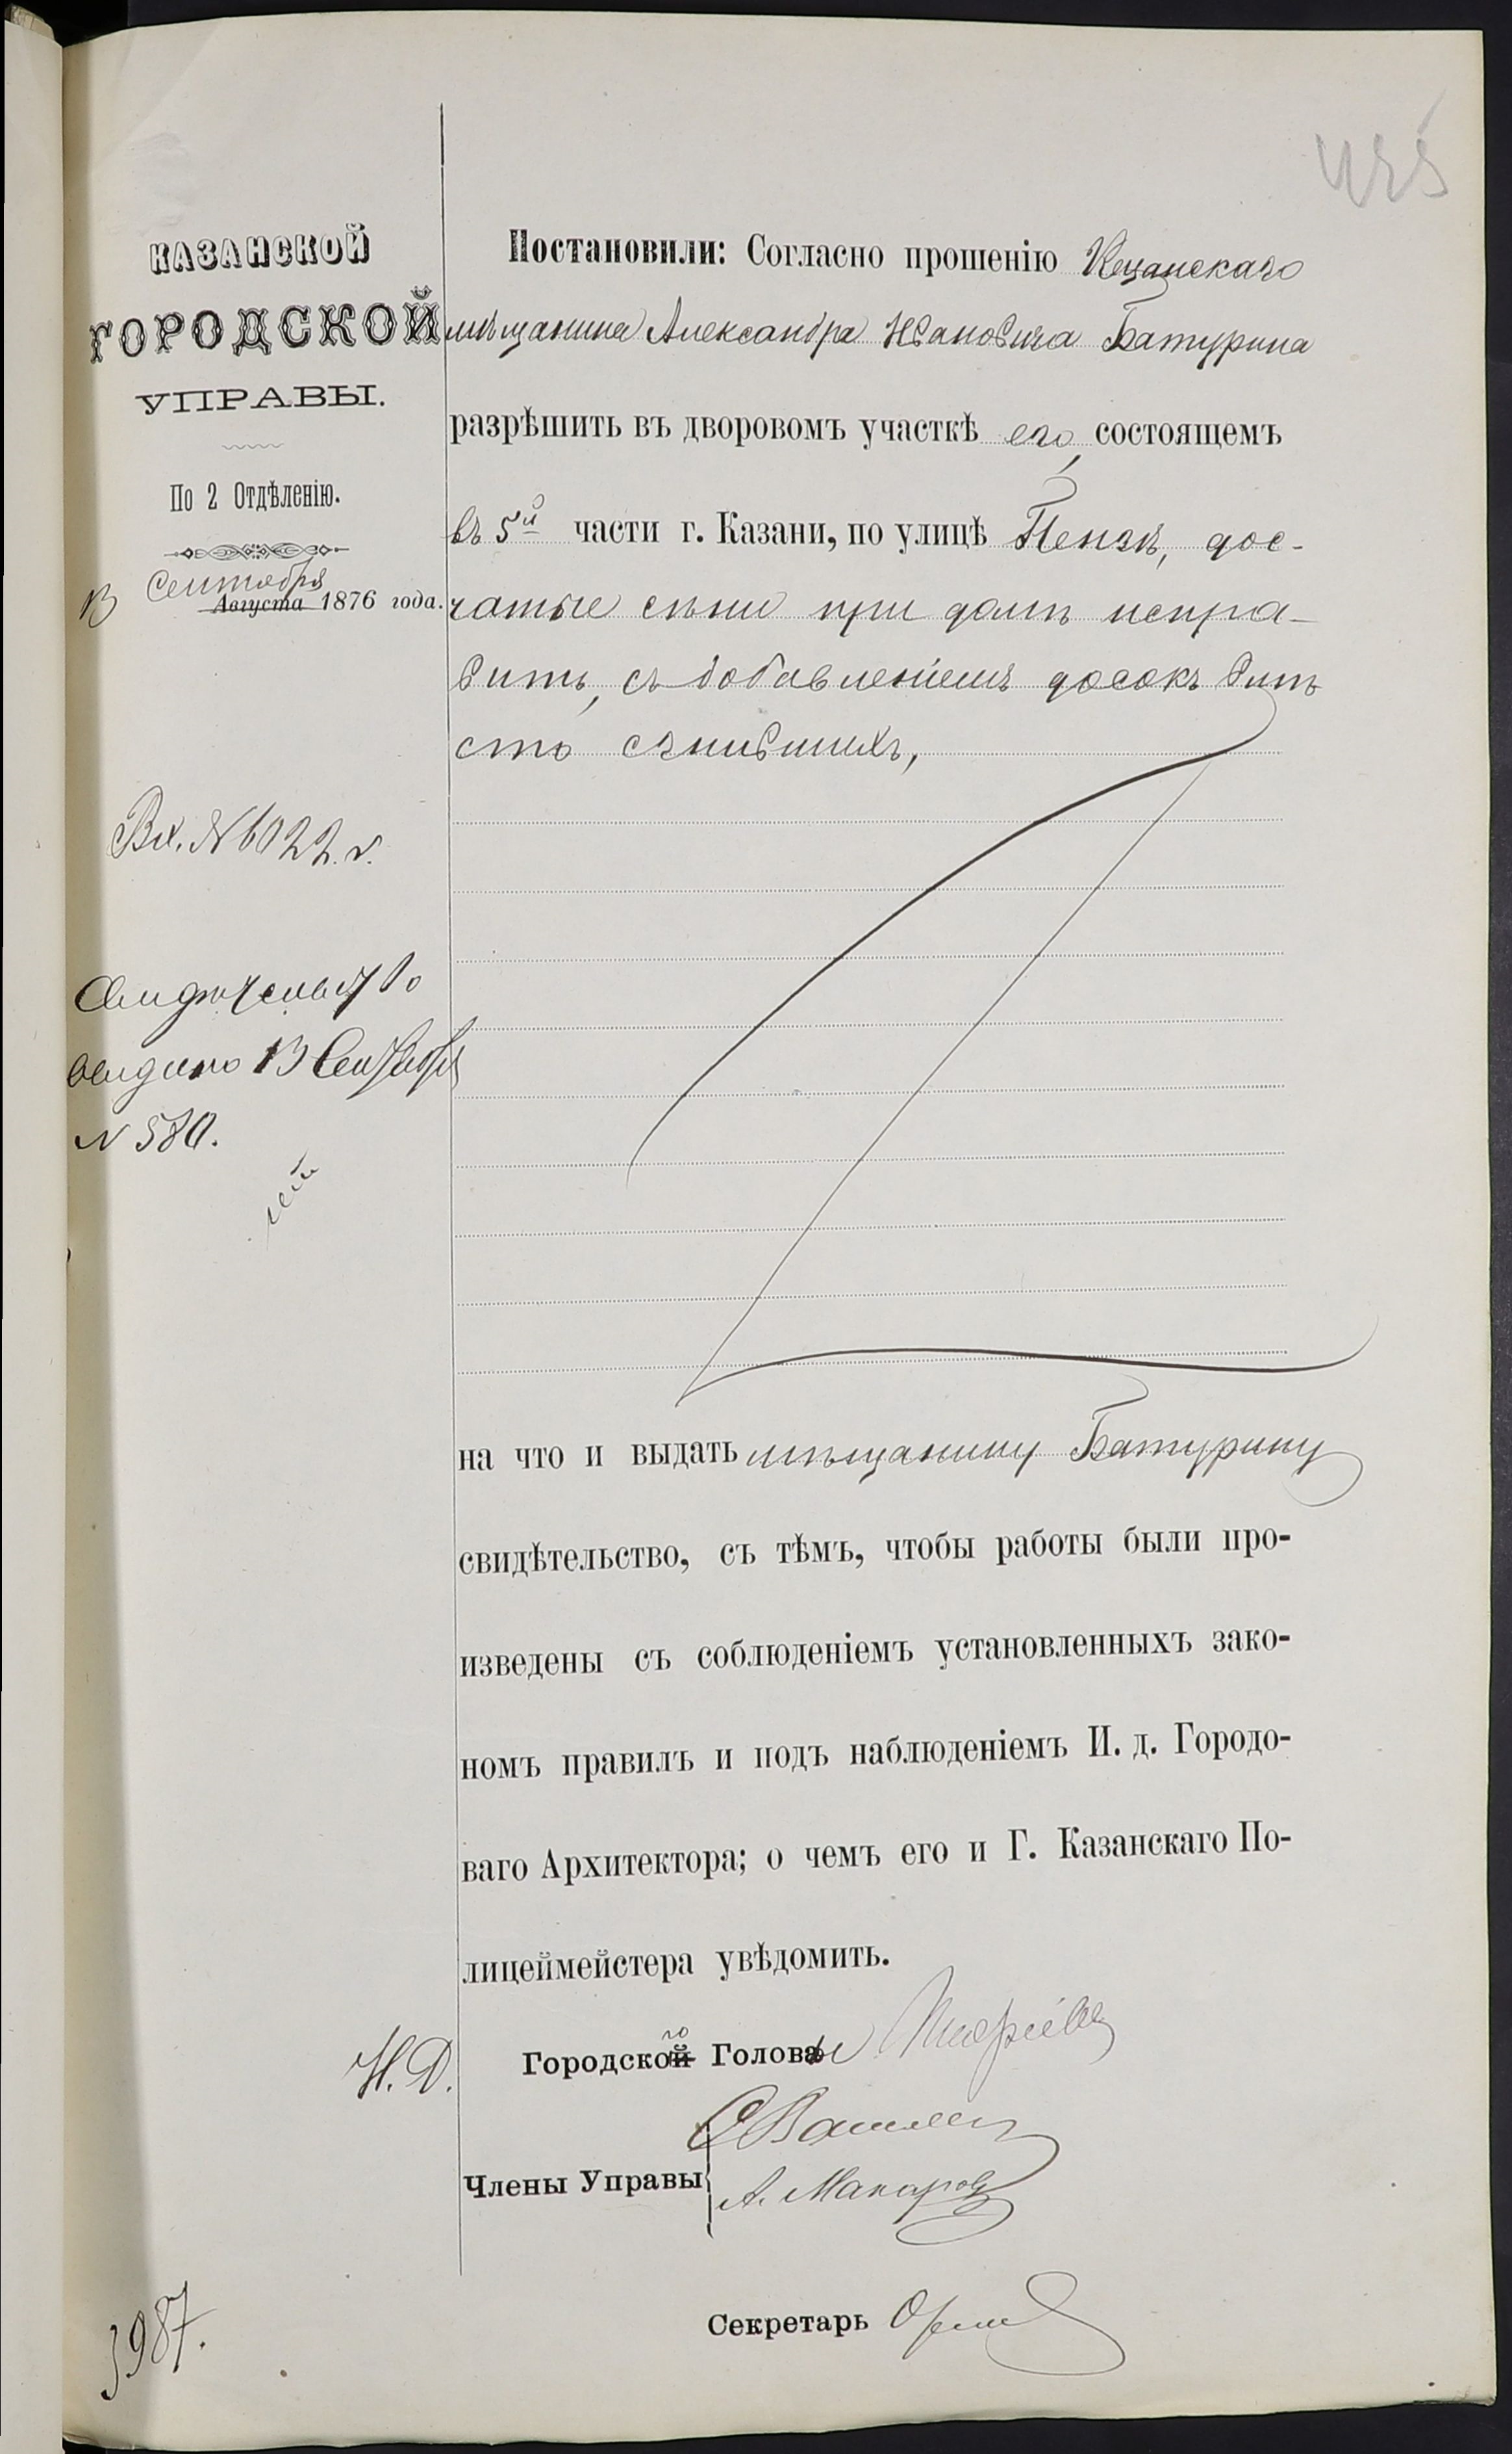 КАЗАНСКОЙ
ГОРОДСКОЙ
УПРАВЫ.
По 2 Отдѣленію.
Сентября
13 Августа 1876 года.
Вх. № 6022.
Свидѣтельство
выдано 13 Сентября
№ 580.
Постановили: Согласно прошенію Казанскаго
мѣщанина Александра Ивановича Батурина
разрѣшить въ дворовомъ участкѣ его, состоящемъ
въ 5й части г. Казани, по улицѣ Пензѣ, дос-
чатые сѣни при домѣ испра-
вить, съ добавленіемъ досокъ вмѣ
сто сгнившихъ,
на что и выдать мѣщанину Батурину
свидѣтельство, съ тѣмъ, чтобы работы были про-
изведены съ соблюденіемъ установленныхъ зако-
номъ правилъ и подъ наблюденіемъ И. д. Городо-
ваго Архитектора; о чемъ его и Г. Казанскаго По-
лицеймейстера увѣдомить.
И. Д. Городского Головы
Члены Управы
А. Макаровъ
Секретарь
3987.